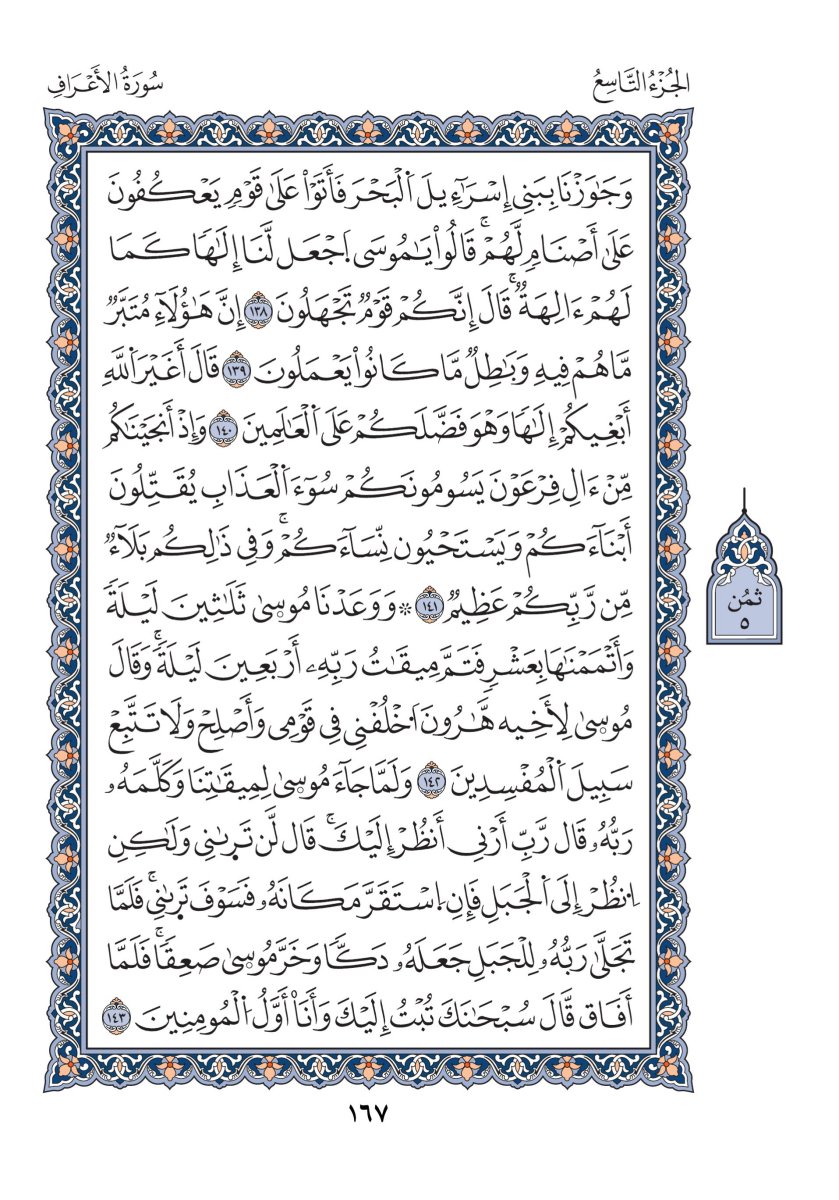 الجُزْءُ التَّاسِعُ
سُورَةُ الأَعْرَافِ
وَجَٰوَزْنَا بِبَنِي إِسْرَآءِيلَ اَ۬لْبَحْرَ فَأَتَوْاْ عَلَىٰ قَوْمٖ يَعْكُفُونَ
عَلَىٰ أَصْنَامٖ لَّهُمْۚ قَالُواْ يَٰمُوسَى اَ۪جْعَل لَّنَا إِلَٰهٗا كَمَا
لَهُمْ ءَالِهَةٞۚ قَالَ إِنَّكُمْ قَوْمٞ تَجْهَلُونَ ١٣٨ إِنَّ هَٰؤُلَآءِ مُتَبَّرٞ
مَّا هُمْ فِيهِ وَبَٰطِلٞ مَّا كَانُواْ يَعْمَلُونَ ١٣٩ قَالَ أَغَيْرَ اَ۬للَّهِ
أَبْغِيكُمْ إِلَٰهٗا وَهْوَ فَضَّلَكُمْ عَلَى اَ۬لْعَٰلَمِينَ ١٤٠ وَإِذْ أَنجَيْنَٰكُم
مِّنْ ءَالِ فِرْعَوْنَ يَسُومُونَكُمْ سُوٓءَ اَ۬لْعَذَابِ يُقَتِّلُونَ
أَبْنَآءَكُمْ وَيَسْتَحْيُون نِّسَآءَكُمْۚ وَفِي ذَٰلِكُم بَلَآءٞ
مِّن رَّبِّكُمْ عَظِيمٞ ١٤١ ۞ وَوَعَدْنَا مُوسىٰ ثَلَٰثِينَ لَيْلَةٗ
وَأَتْمَمْنَٰهَا بِعَشْرٖ فَتَمَّ مِيقَٰتُ رَبِّهِۦ أَرْبَعِينَ لَيْلَةٗۚ وَقَالَ
مُوسىٰ لِأَخِيه هَّٰرُونَ اَ۟خْلُفْنِي فِي قَوْمِي وَأَصْلِحْ وَلَا تَتَّبِعْ
سَبِيلَ اَ۬لْمُفْسِدِينَ ١٤٢ وَلَمَّا جَآءَ مُوسىٰ لِمِيقَٰتِنَا وَكَلَّمَهُۥ
رَبُّهُۥ قَال رَّبِّ أَرْنِي أَنظُرْ إِلَيْكَۚ قَال لَّن تَرىٰنِي وَلَٰكِنِ
اِ۟نظُرْ إِلَى اَ۬لْجَبَلِ فَإِنِ اِ۪سْتَقَرَّ مَكَانَهُۥ فَسَوْفَ تَرىٰنِيۚ فَلَمَّا
تَجَلَّىٰ رَبُّهُۥ لِلْجَبَلِ جَعَلَهُۥ دَكّٗا وَخَرَّ مُوسىٰ صَعِقٗاۚ فَلَمَّا
أَفَاق قَّالَ سُبْحَٰنَكَ تُبْتُ إِلَيْكَ وَأَنَا أَوَّلُ اُ۬لْمُومِنِينَ ١٤٣
ثمُن
٥
١٦٧